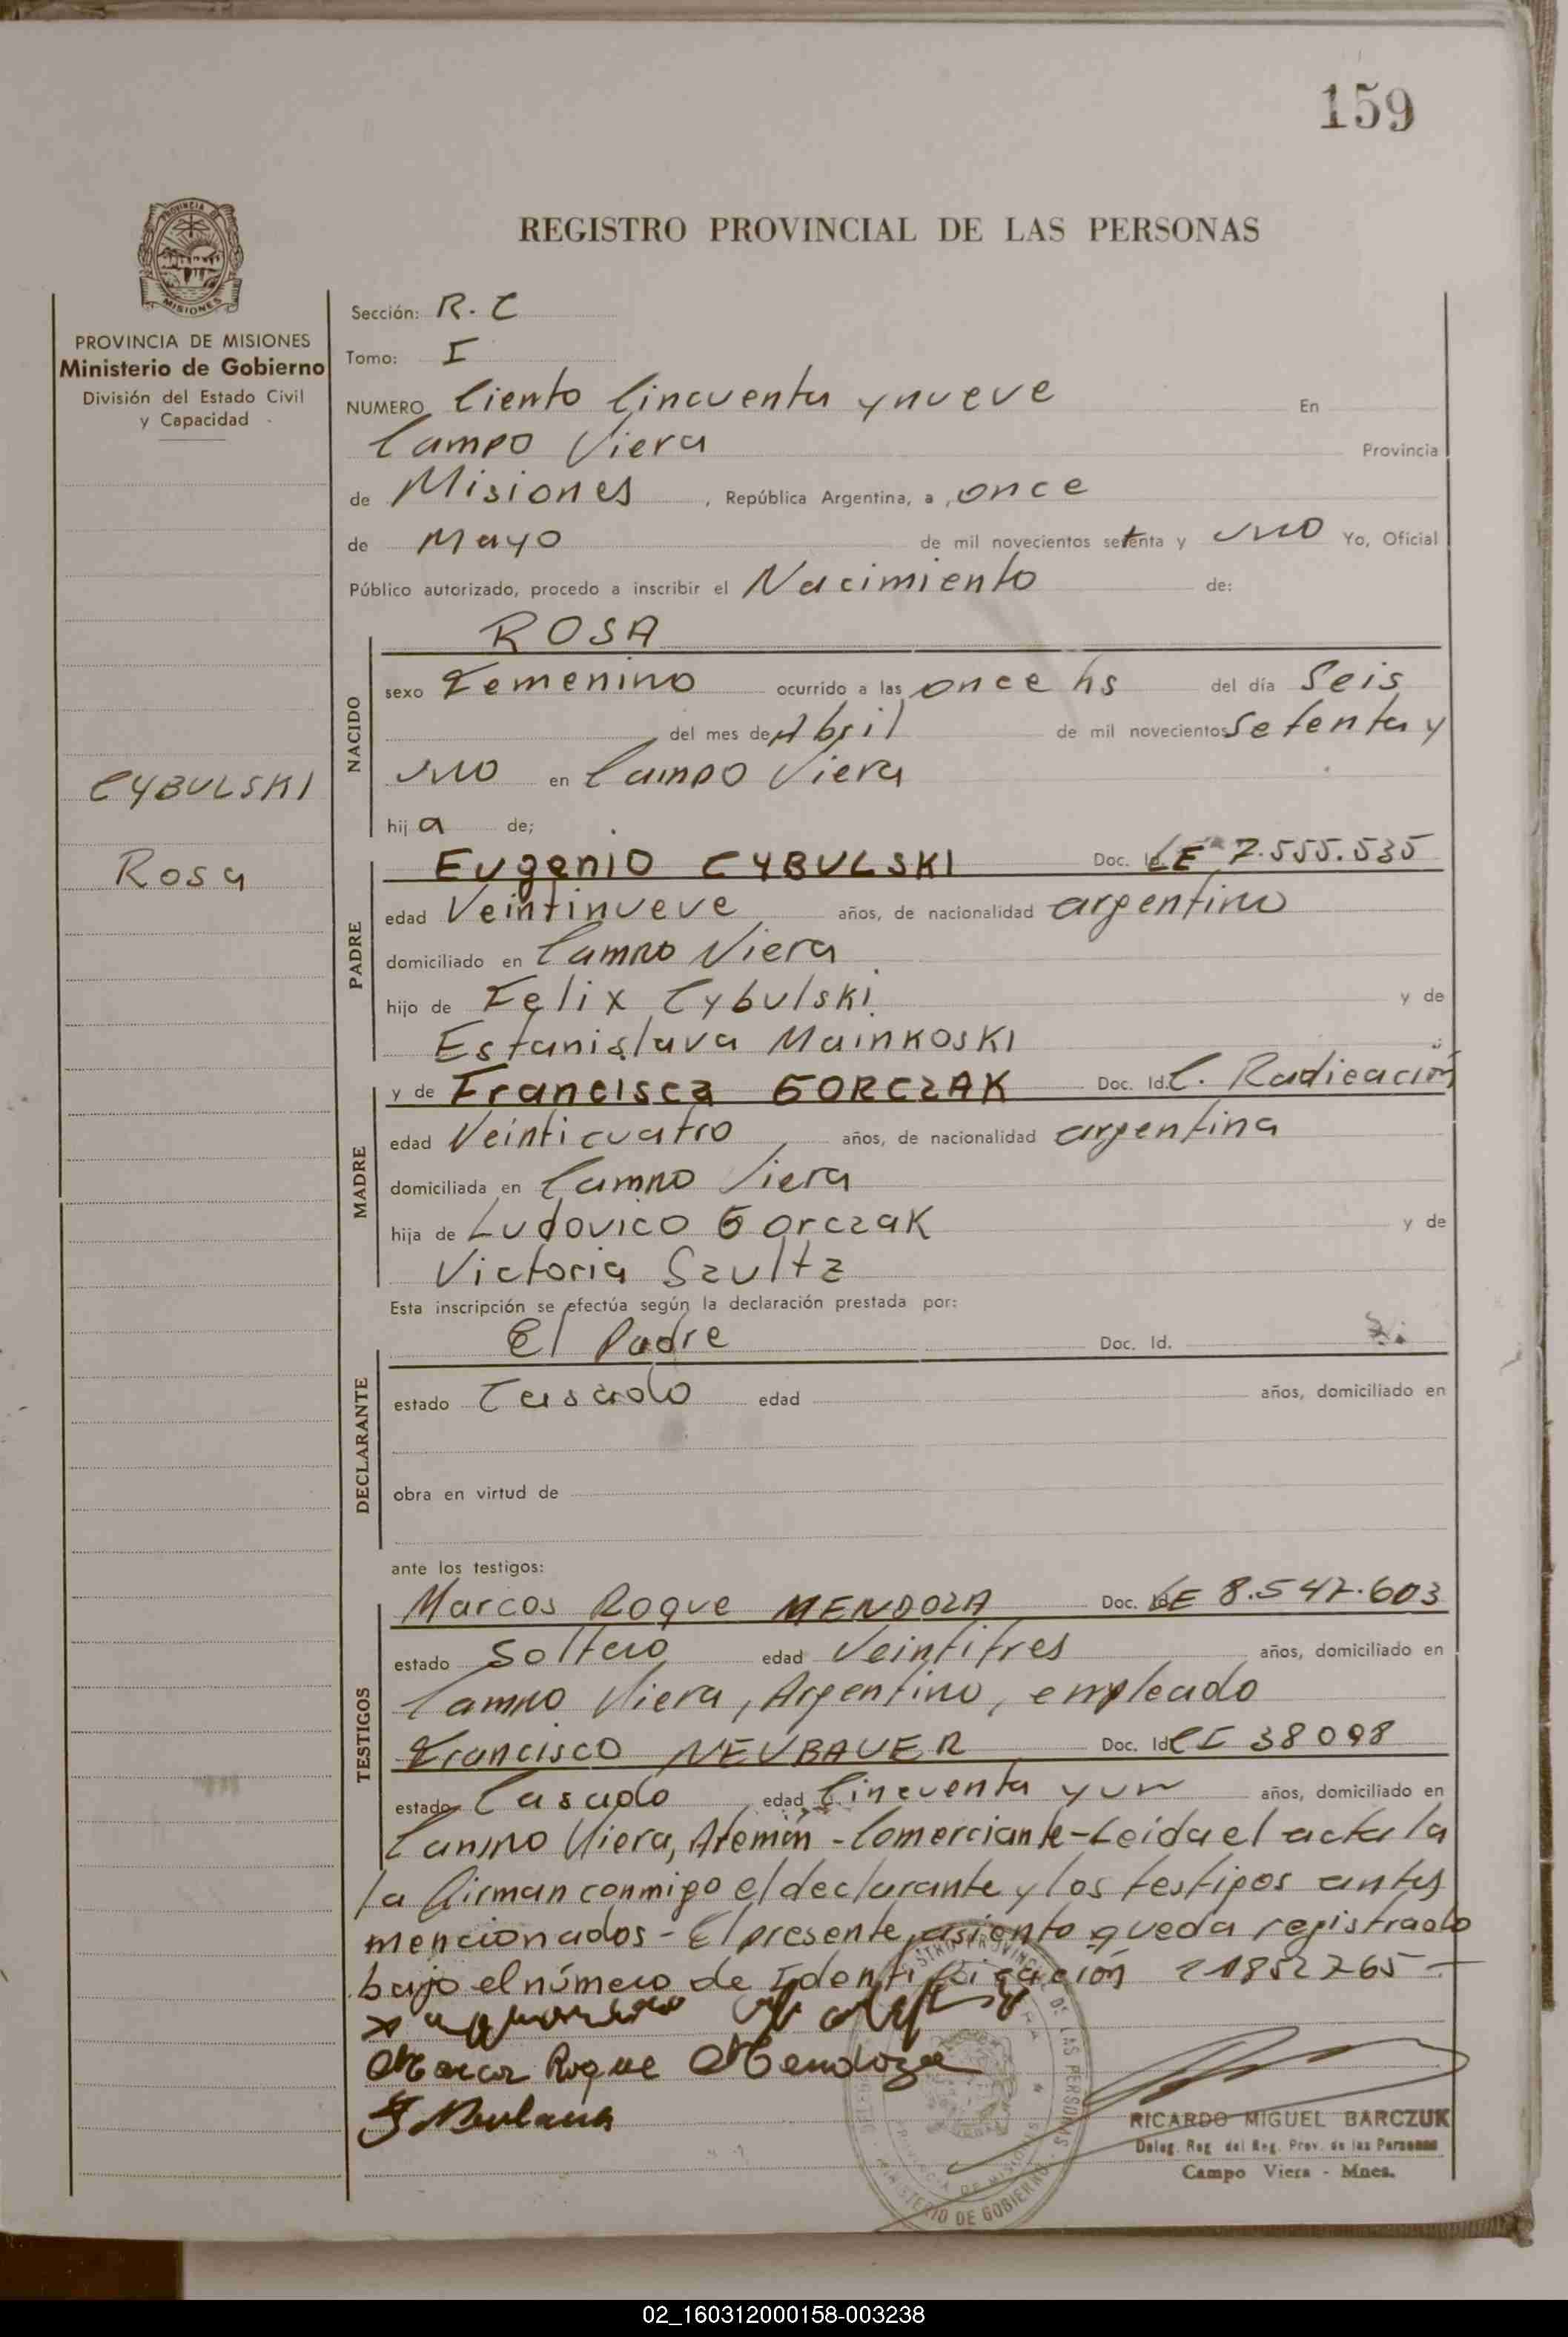 159
PROVINCIA DE
MISIONES
REGISTRO PROVINCIAL DE LAS PERSONAS
PROVINCIA DE MISIONES
Ministerio de Gobierno
División del Estado Civil
y Capacidad
CYBULSKI
Rosa
Sección: R. C
Tomo: I
NUMERO Ciento Cincuenta y nueve En
Campo Viera Provincia
de Misiones, República Argentina, a once
de Mayo de mil novecientos setenta y uno Yo, Oficial
Público autorizado, procedo a inscribir el Nacimiento de:
NACIDO
ROSA
sexo Femenino ocurrido a las once hs del día Seis
del mes de Abril de mil novecientos Setenta y
uno en Campo Viera
hij a de;
PADRE
Eugenio CYBULSKI Doc. LE 7.555.535
edad Veintinueve años, de nacionalidad argentino
domiciliado en Campo Viera
hijo de Felix Cybulski y de
Estanislava Mainkoski
MADRE
y de Francisca GORCZAK Doc. Id. C. Radicación
edad Veinticuatro años, de nacionalidad argentina
domiciliada en Campo Viera
hija de Ludovico Gorczak y de
Victoria Szultz
Esta inscripción se efectúa según la declaración prestada por:
DECLARANTE
El Padre Doc. Id.
estado Casado edad años, domiciliado en
obra en virtud de
ante los testigos:
TESTIGOS
Marcos Roque MENDOZA Doc. LE 8.547.603
estado Soltero edad Veintitres años, domiciliado en
Campo Viera, Argentino, empleado
Francisco NEUBAUER Doc. Id CI 38098
estado Casado edad Cincuenta y un años, domiciliado en
Campo Viera, Alemán - Comerciante - Leida el acta la
la firman conmigo el declarante y los testigos antes
mencionados - El presente asiento queda registrado
bajo el número de Identificación 21852765 -
Marcos Roque Mendoza
RICARDO MIGUEL BARCZUK
Deleg. Reg. del Reg. Prov. de las Personas
Campo Viera - Mnes.
MINISTERIO DE GOBIERNO
02_160312000158-003238